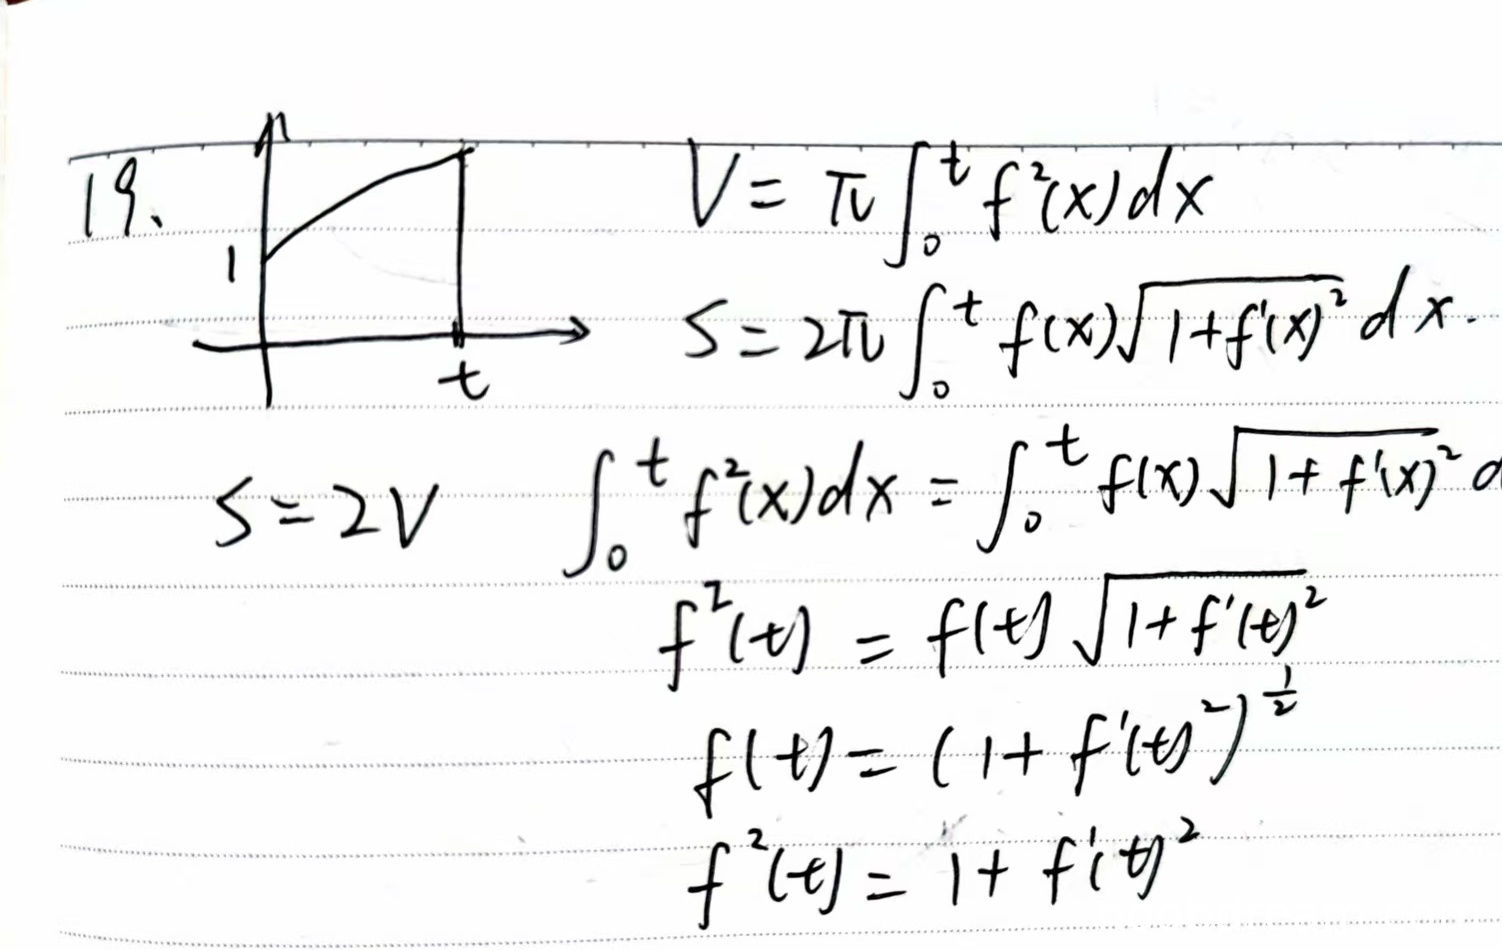 19.
1
t
V = π∫₀ᵗ f²(x)dx
S = 2π∫₀ᵗ f(x)√(1+f'(x)²) dx.
S = 2V ∫₀ᵗ f²(x)dx = ∫₀ᵗ f(x)√(1+f'(x)²) d
f²(t) = f(t)√(1+f'(t)²)
f(t) = (1+f'(t)²)^½
f²(t) = 1+f'(t)²